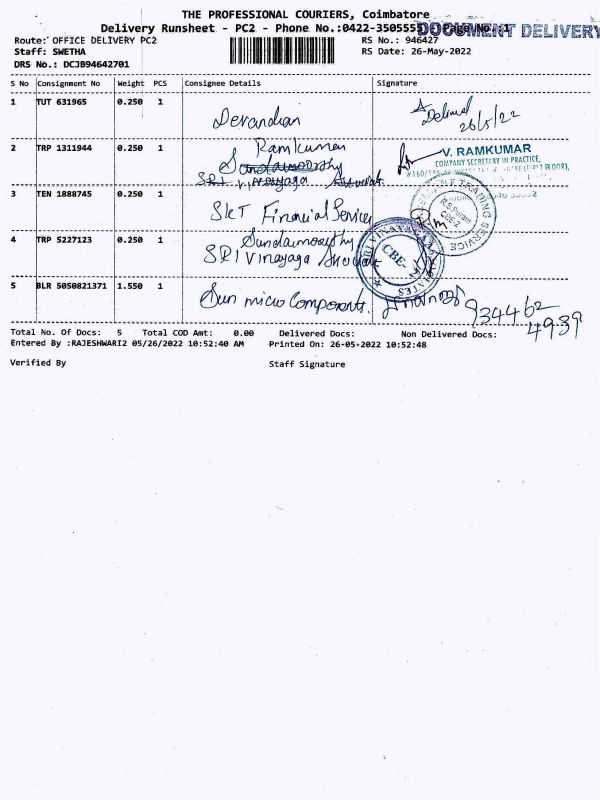 THE PROFESSIONAL COURIERS, Coimbatore
Delivery Runsheet - PC2 - Phone No.:0422-3505555 Page No.:1
DOCUMENT DELIVERY
Route: OFFICE DELIVERY PC2 RS No.: 946427
Staff: SWETHA RS Date: 26-May-2022
DRS No.: DCJB94642701
S No Consignment No Weight PCS Consignee Details Signature
1 TUT 631965 0.250 1 Devandran Delivered
26/5/22
2 TRP 1311944 0.250 1 Ramkumar V. RAMKUMAR
COMPANY SECRETARY IN PRACTICE,
Sundaramoorthy
SRI Vinayaga
3 TEN 1888745 0.250 1 SKT Financial Services
TRADING SERVICE
R.S.Puram
CBE-2
4 TRP 5227123 0.250 1 Sundaramoorthy
SRI Vinayaga
SRI VINAYAGA ASSOCIATES
CBE-
5 BLR 5050821371 1.550 1 Sun micro Components.
934462
4939
Total No. Of Docs: 5 Total COD Amt: 0.00 Delivered Docs: Non Delivered Docs:
Entered By :RAJESHWARI2 05/26/2022 10:52:40 AM Printed On: 26-05-2022 10:52:48
Verified By Staff Signature